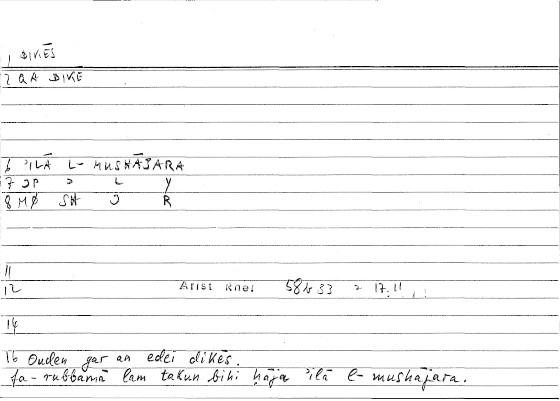 1 DIKĒS
2 QA DIKE
6 'ILĀ L- MUSHĀJARA
7 JP J L Y
8 MØ SH J R
11
12 Arist Rhet 58b33 = 17.11
14
16 Ouden gar an edei dikēs.
fa-rubbamā lam takun bihi ḥāja 'ilā l-mushājara.